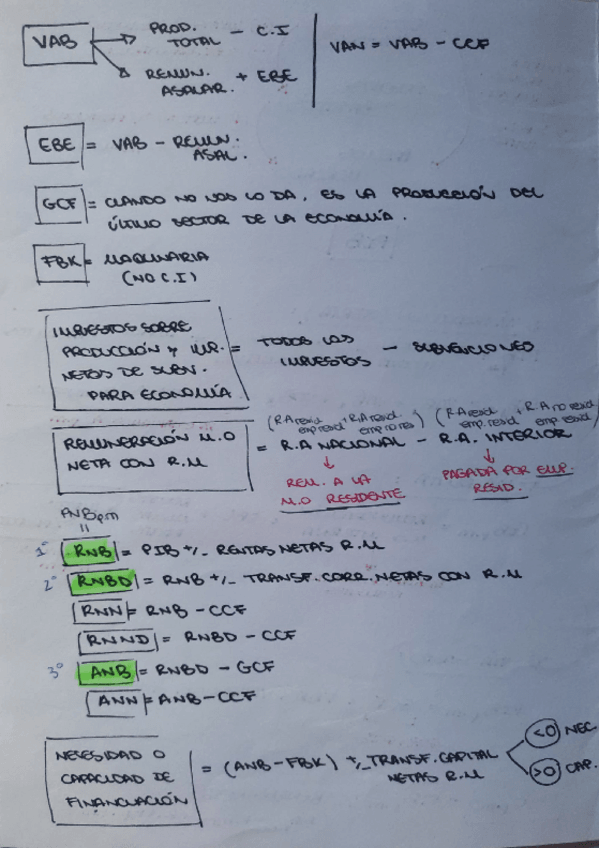 VAB → PROD. TOTAL - C.I
→ REMUN. ASALAR. + EBE
VAN = VAB - CCF
EBE = VAB - REMUN. ASAL.
GCF = CUANDO NO NOS LO DA, ES LA PRODUCCIÓN DEL
ÚLTIMO SECTOR DE LA ECONOMÍA.
FBK = MAQUINARIA
(NO C.I)
IMPUESTOS SOBRE
PRODUCCIÓN Y IMP.
NETOS DE SUBV.
PARA ECONOMÍA
= TODOS LOS IMPUESTOS - SUBVENCIONES
(RA resid. emp resid + RA resid. emp no res) (RA resid. emp. resid + R.A no resid emp resid)
REMUNERACIÓN M.O
NETA CON R.M
= R.A NACIONAL - R.A. INTERIOR
↓ REM. A LA M.O RESIDENTE
↓ PAGADA POR EMP. RESID.
PNBpm
=
1º RNB = PIB +/- RENTAS NETAS R.M
2º RNBD = RNB +/- TRANSF. CORR. NETAS CON R.M
RNN = RNB - CCF
RNND = RNBD - CCF
3º ANB = RNBD - GCF
ANN = ANB - CCF
NECESIDAD O
CAPACIDAD DE
FINANCIACIÓN
= (ANB - FBK) +/- TRANSF. CAPITAL NETAS R.M
<0 NEC.
>0 CAP.